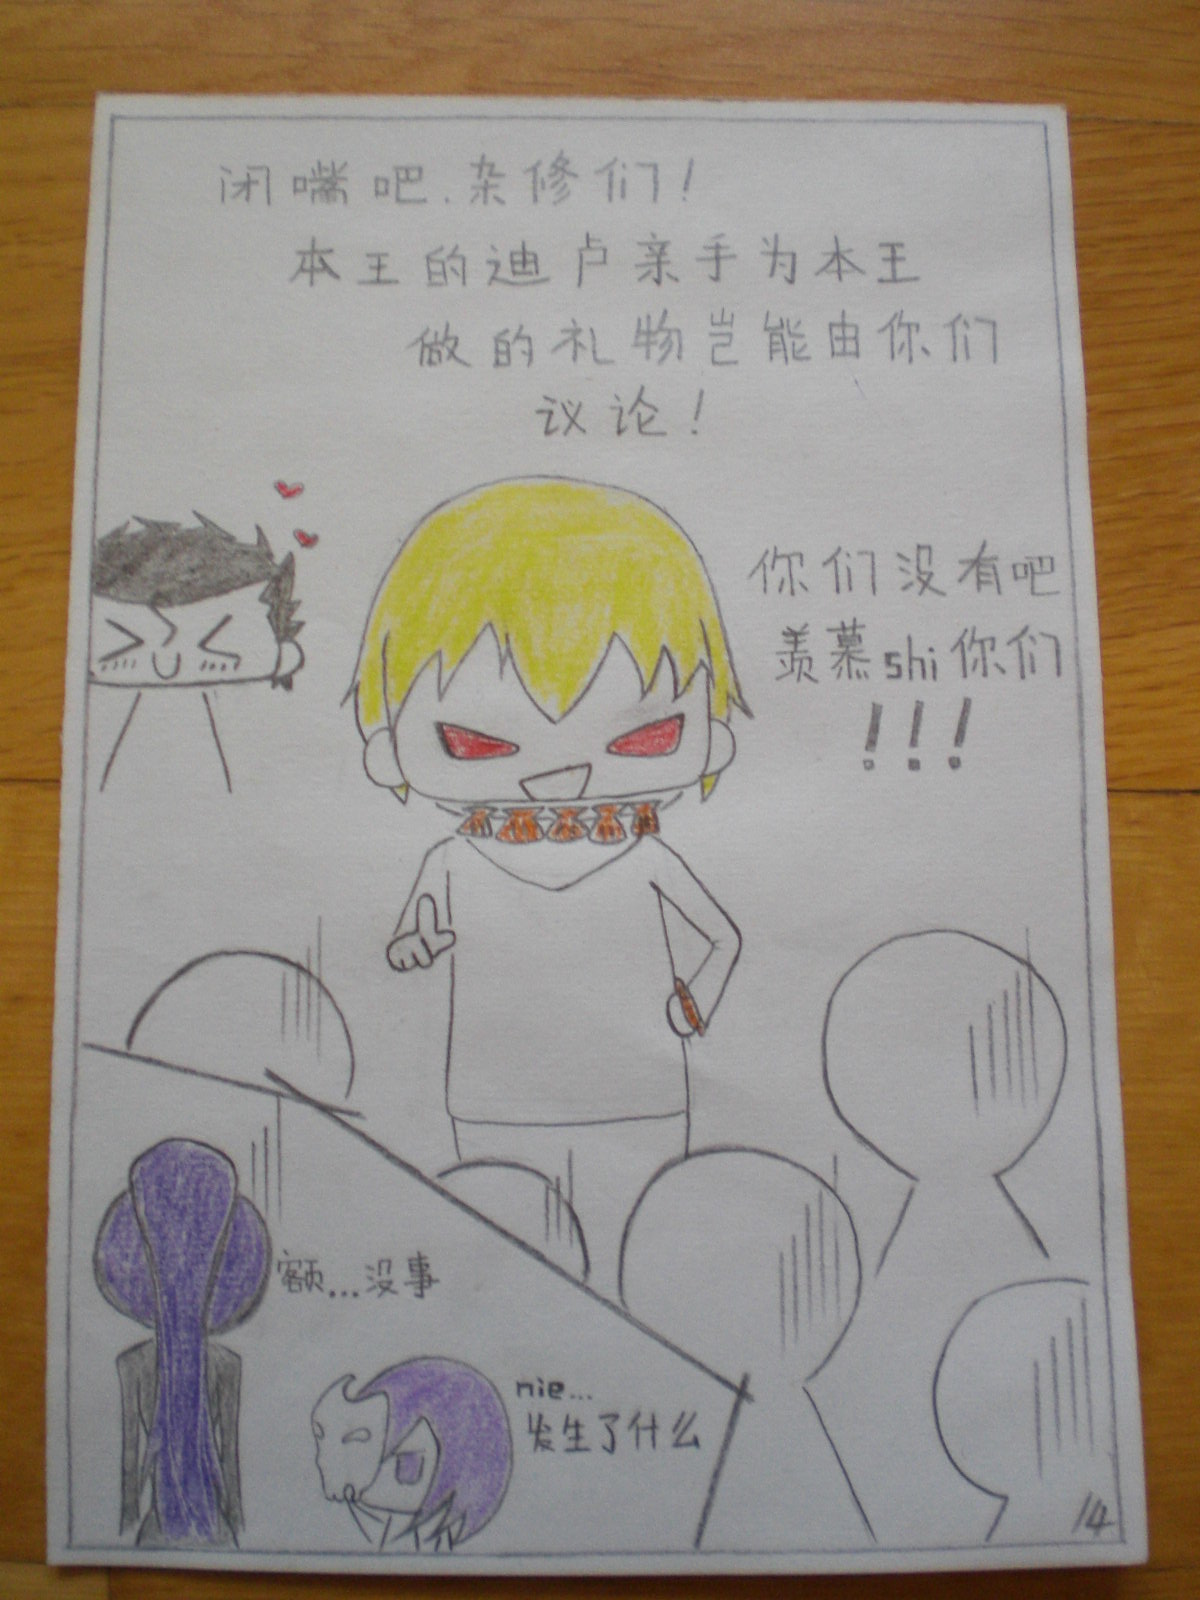 闭嘴吧.杂修们!
本王的迪卢亲手为本王
做的礼物岂能由你们
议论!
你们没有吧
羡慕shi你们
!!!
额...没事
nie...
发生了什么
14